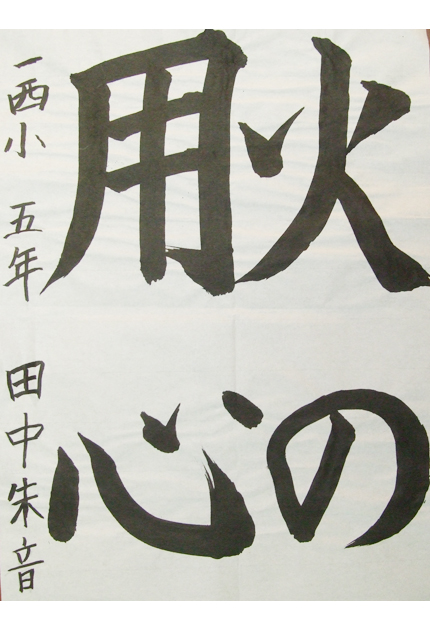 火の
用心
一西小 五年 田中朱音